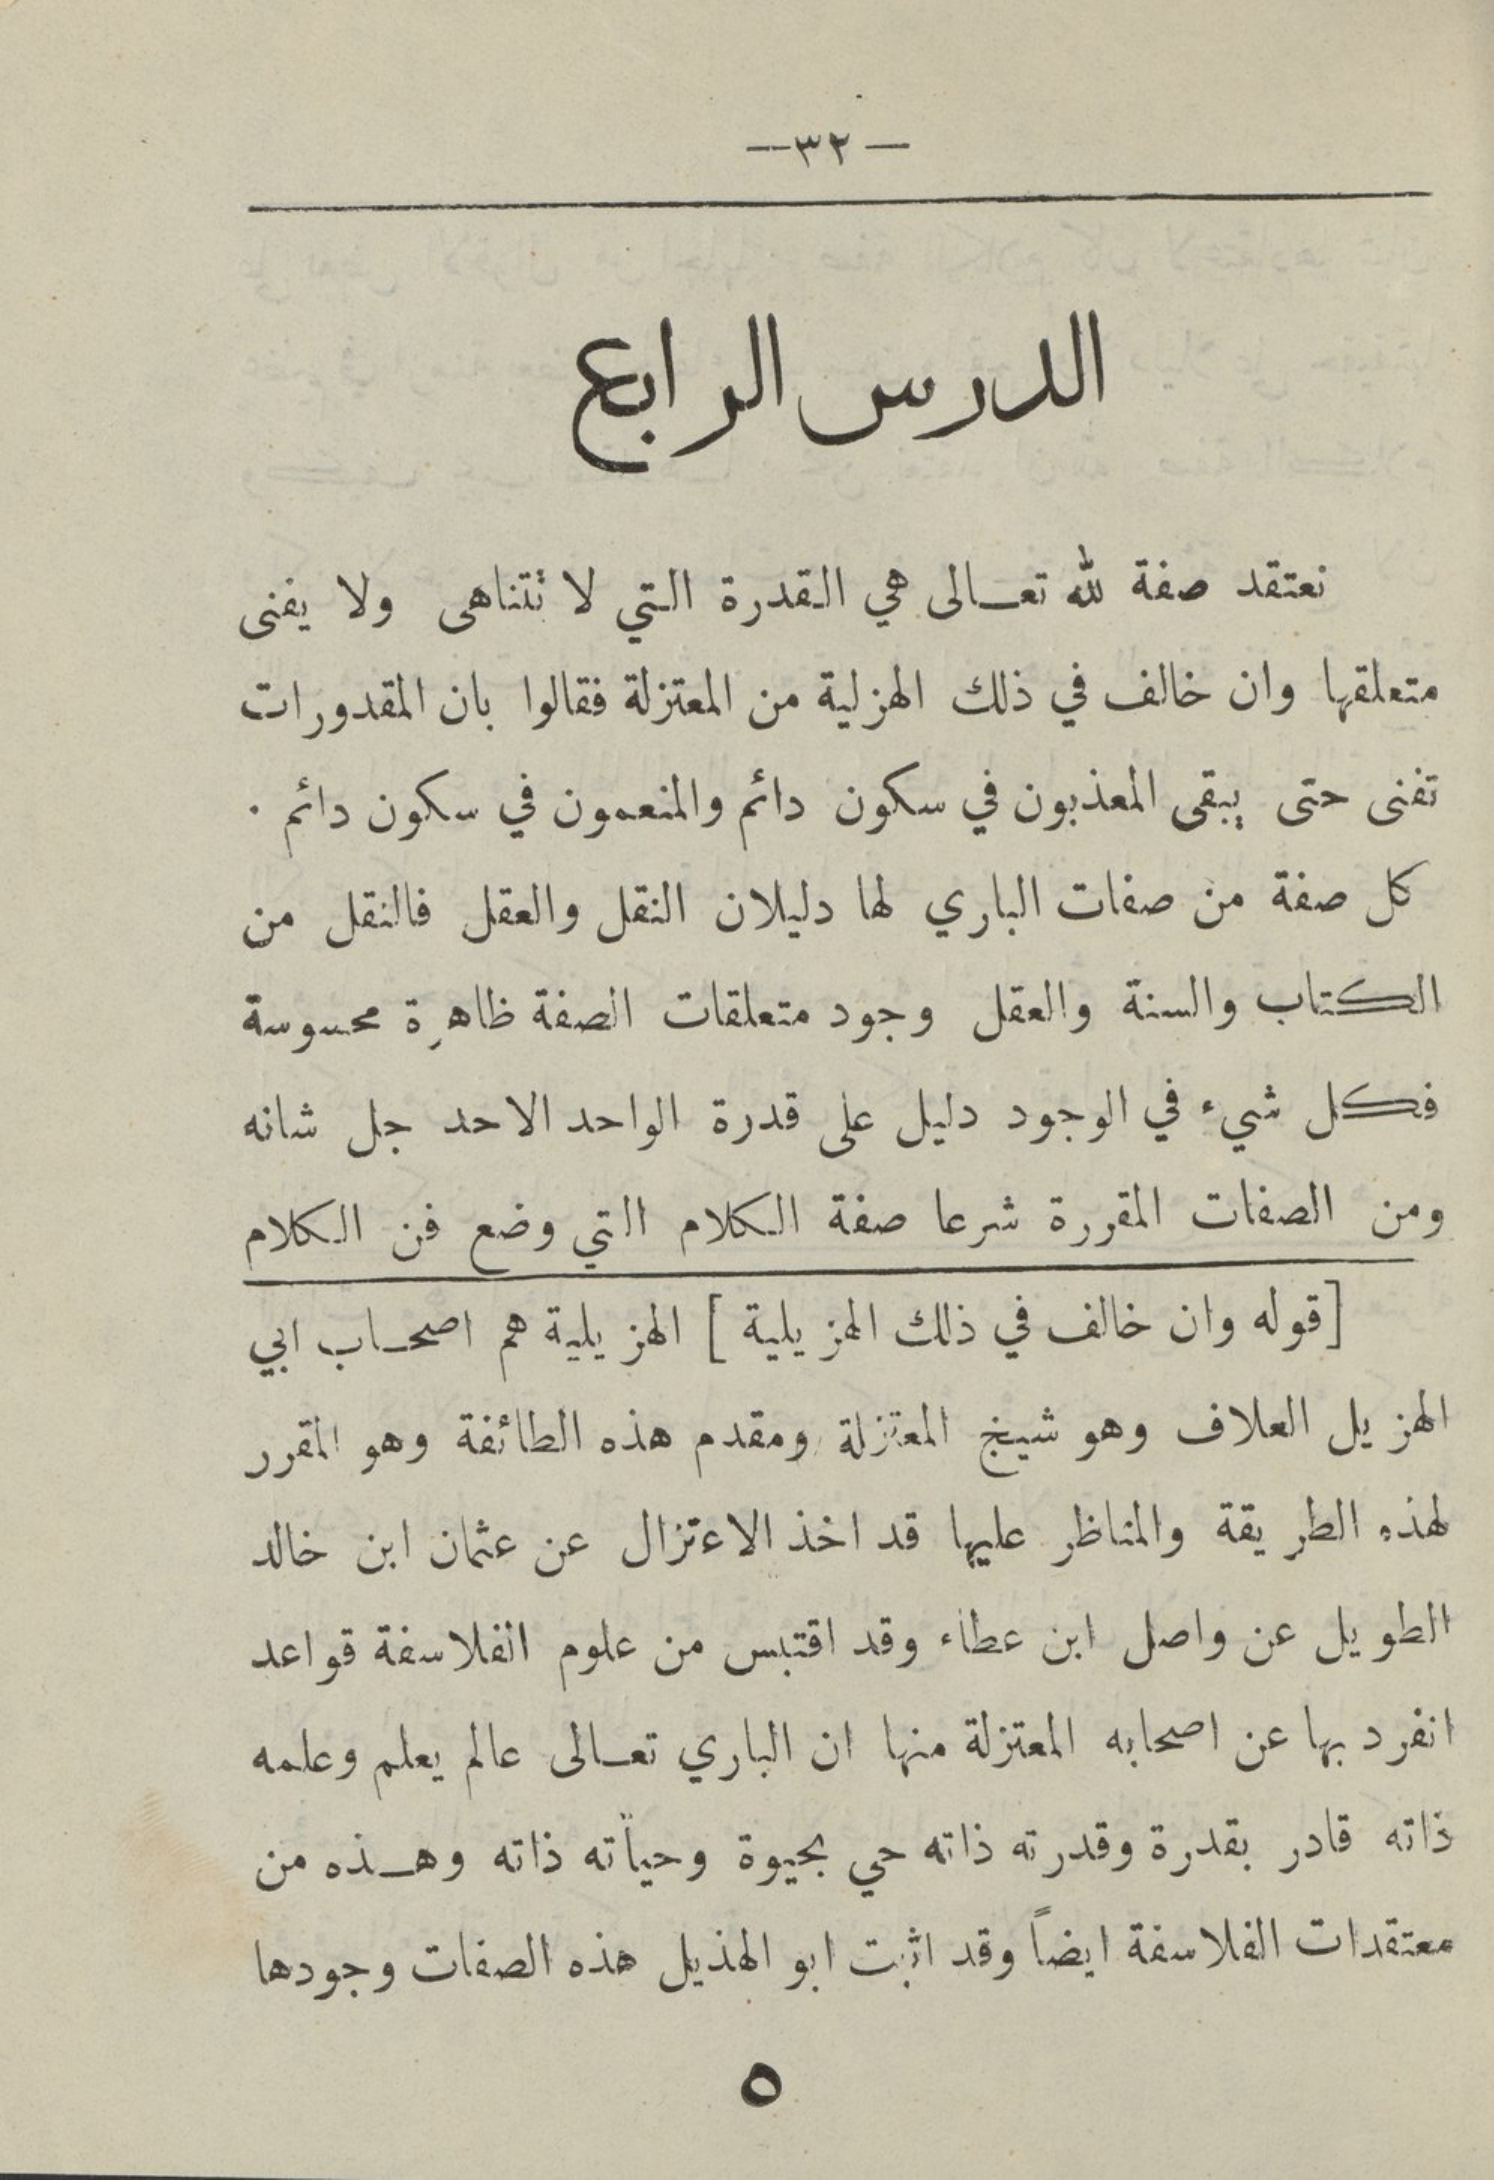 —٣٢—
الدرس الرابع
نعتقد صفة لله تعالى هي القدرة التي لا تتناهى ولا يفنى
متعلقها وان خالف في ذلك الهزلية من المعتزلة فقالوا بان المقدورات
تفنى حتى يبقى المعذبون في سكون دائم والمنعمون في سكون دائم ٠
كل صفة من صفات الباري لها دليلان النقل والعقل فالنقل من
الكتاب والسنة والعقل وجود متعلقات الصفة ظاهرة محسوسة
فكل شيء في الوجود دليل على قدرة الواحد الاحد جل شانه
ومن الصفات المقررة شرعا صفة الكلام التي وضع فن الكلام
[قوله وان خالف في ذلك الهزيلية] الهزيلية هم اصحاب ابي
الهزيل العلاف وهو شيخ المعتزلة ومقدم هذه الطائفة وهو المقرر
لهذه الطريقة والمناظر عليها قد اخذ الاعتزال عن عثمان ابن خالد
الطويل عن واصل ابن عطاء وقد اقتبس من علوم الفلاسفة قواعد
انفرد بها عن اصحابه المعتزلة منها ان الباري تعالى عالم يعلم وعلمه
ذاته قادر بقدرة وقدرته ذاته حي بحيوة وحياته ذاته وهذه من
معتقدات الفلاسفة ايضاً وقد اثبت ابو الهذيل هذه الصفات وجودها
٥